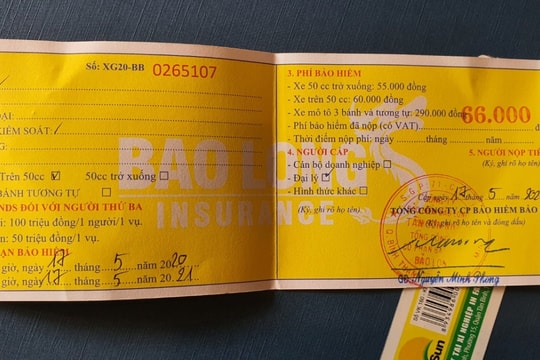 Số: XG20-BB 0265107
ẠI:
KIỂM SOÁT:
Trên 50cc ☑ 50cc trở xuống: ☐
BÁNH TƯƠNG TỰ ☐
NDS ĐỐI VỚI NGƯỜI THỨ BA
i: 100 triệu đồng/1 người/1 vụ.
n: 50 triệu đồng/1 vụ.
ẠN BẢO HIỂM
giờ, ngày 17 tháng 5 năm 2020
giờ, ngày 17 tháng 5 năm 2021
BAO LONG
INSURANCE
3. PHÍ BẢO HIỂM
- Xe 50 cc trở xuống: 55.000 đồng
- Xe trên 50 cc: 60.000 đồng
- Xe mô tô 3 bánh và tương tự: 290.000 đồng
66.000
- Phí bảo hiểm đã nộp (có VAT).
- Thời điểm nộp phí: ngày tháng năm
4. NGƯỜI CẤP
- Cán bộ doanh nghiệp ☐
- Đại lý ☑
- Hình thức khác ☐
(Ký, ghi rõ họ tên)
5. NGƯỜI NỘP TIỀ
(Ký, ghi rõ họ tên)
Cấp ngày 17 tháng 5 năm 202
TỔNG CÔNG TY CP BẢO HIỂM BẢO
(Ký, ghi rõ họ tên và đóng dấu)
GĐ. Nguyễn Minh Phong
Sun